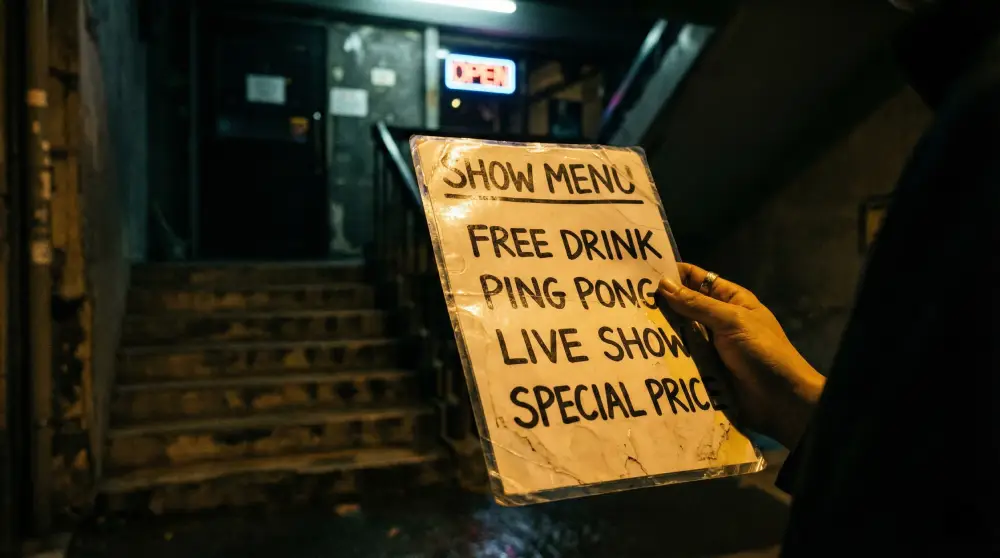 OPEN
SHOW MENU
FREE DRINK
PING PONG
LIVE SHOW
SPECIAL PRICE